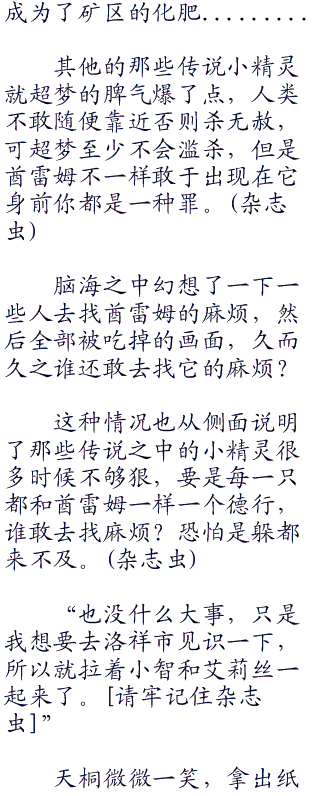 成为了矿区的化肥.........
其他的那些传说小精灵
就超梦的脾气爆了点，人类
不敢随便靠近否则杀无赦，
可超梦至少不会滥杀，但是
酋雷姆不一样敢于出现在它
身前你都是一种罪。(杂志
虫)
脑海之中幻想了一下一
些人去找酋雷姆的麻烦，然
后全部被吃掉的画面，久而
久之谁还敢去找它的麻烦？
这种情况也从侧面说明
了那些传说之中的小精灵很
多时候不够狠，要是每一只
都和酋雷姆一样一个德行，
谁敢去找麻烦？恐怕是躲都
来不及。(杂志虫)
“也没什么大事，只是
我想要去洛祥市见识一下，
所以就拉着小智和艾莉丝一
起来了。[请牢记住杂志
虫]”
天桐微微一笑，拿出纸